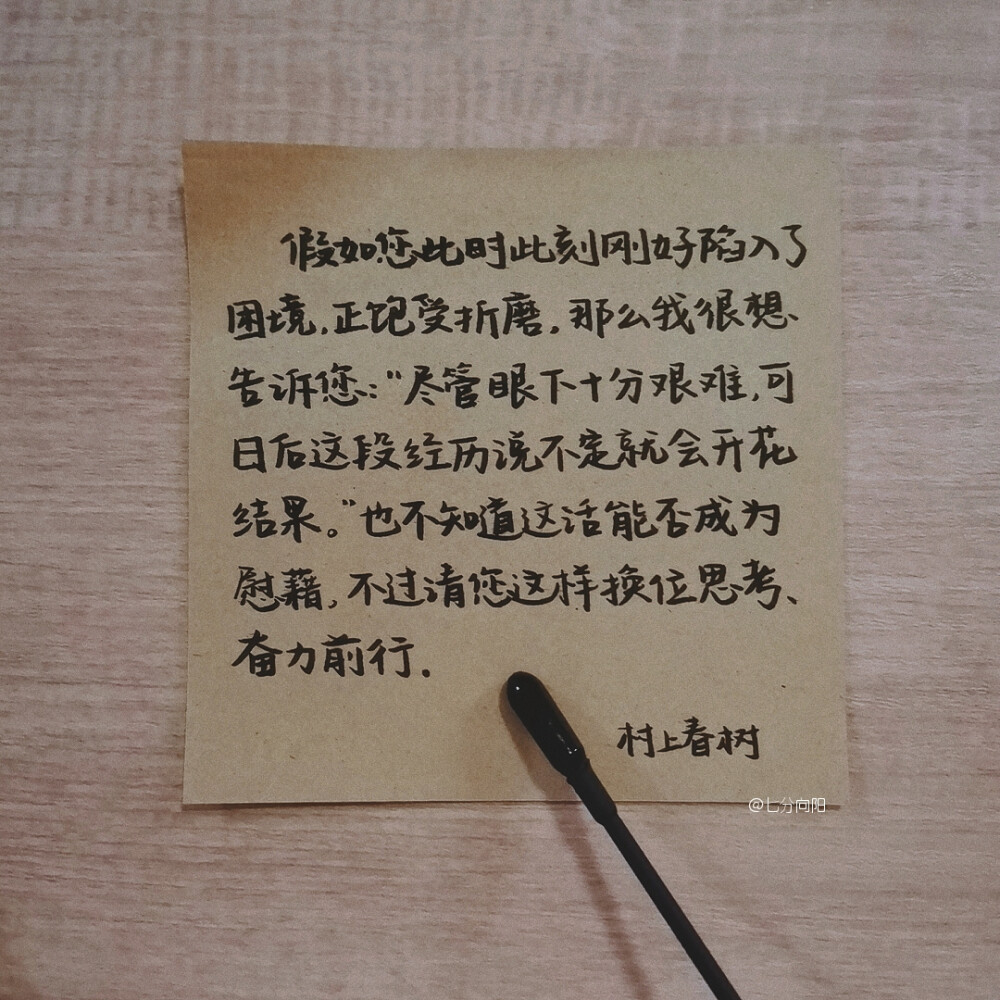 假如您此时此刻刚好陷入了
困境,正饱受折磨,那么我很想
告诉您:“尽管眼下十分艰难,可
日后这段经历说不定就会开花
结果。”也不知道这话能否成为
慰藉,不过请您这样换位思考、
奋力前行.
村上春树
@七分向阳